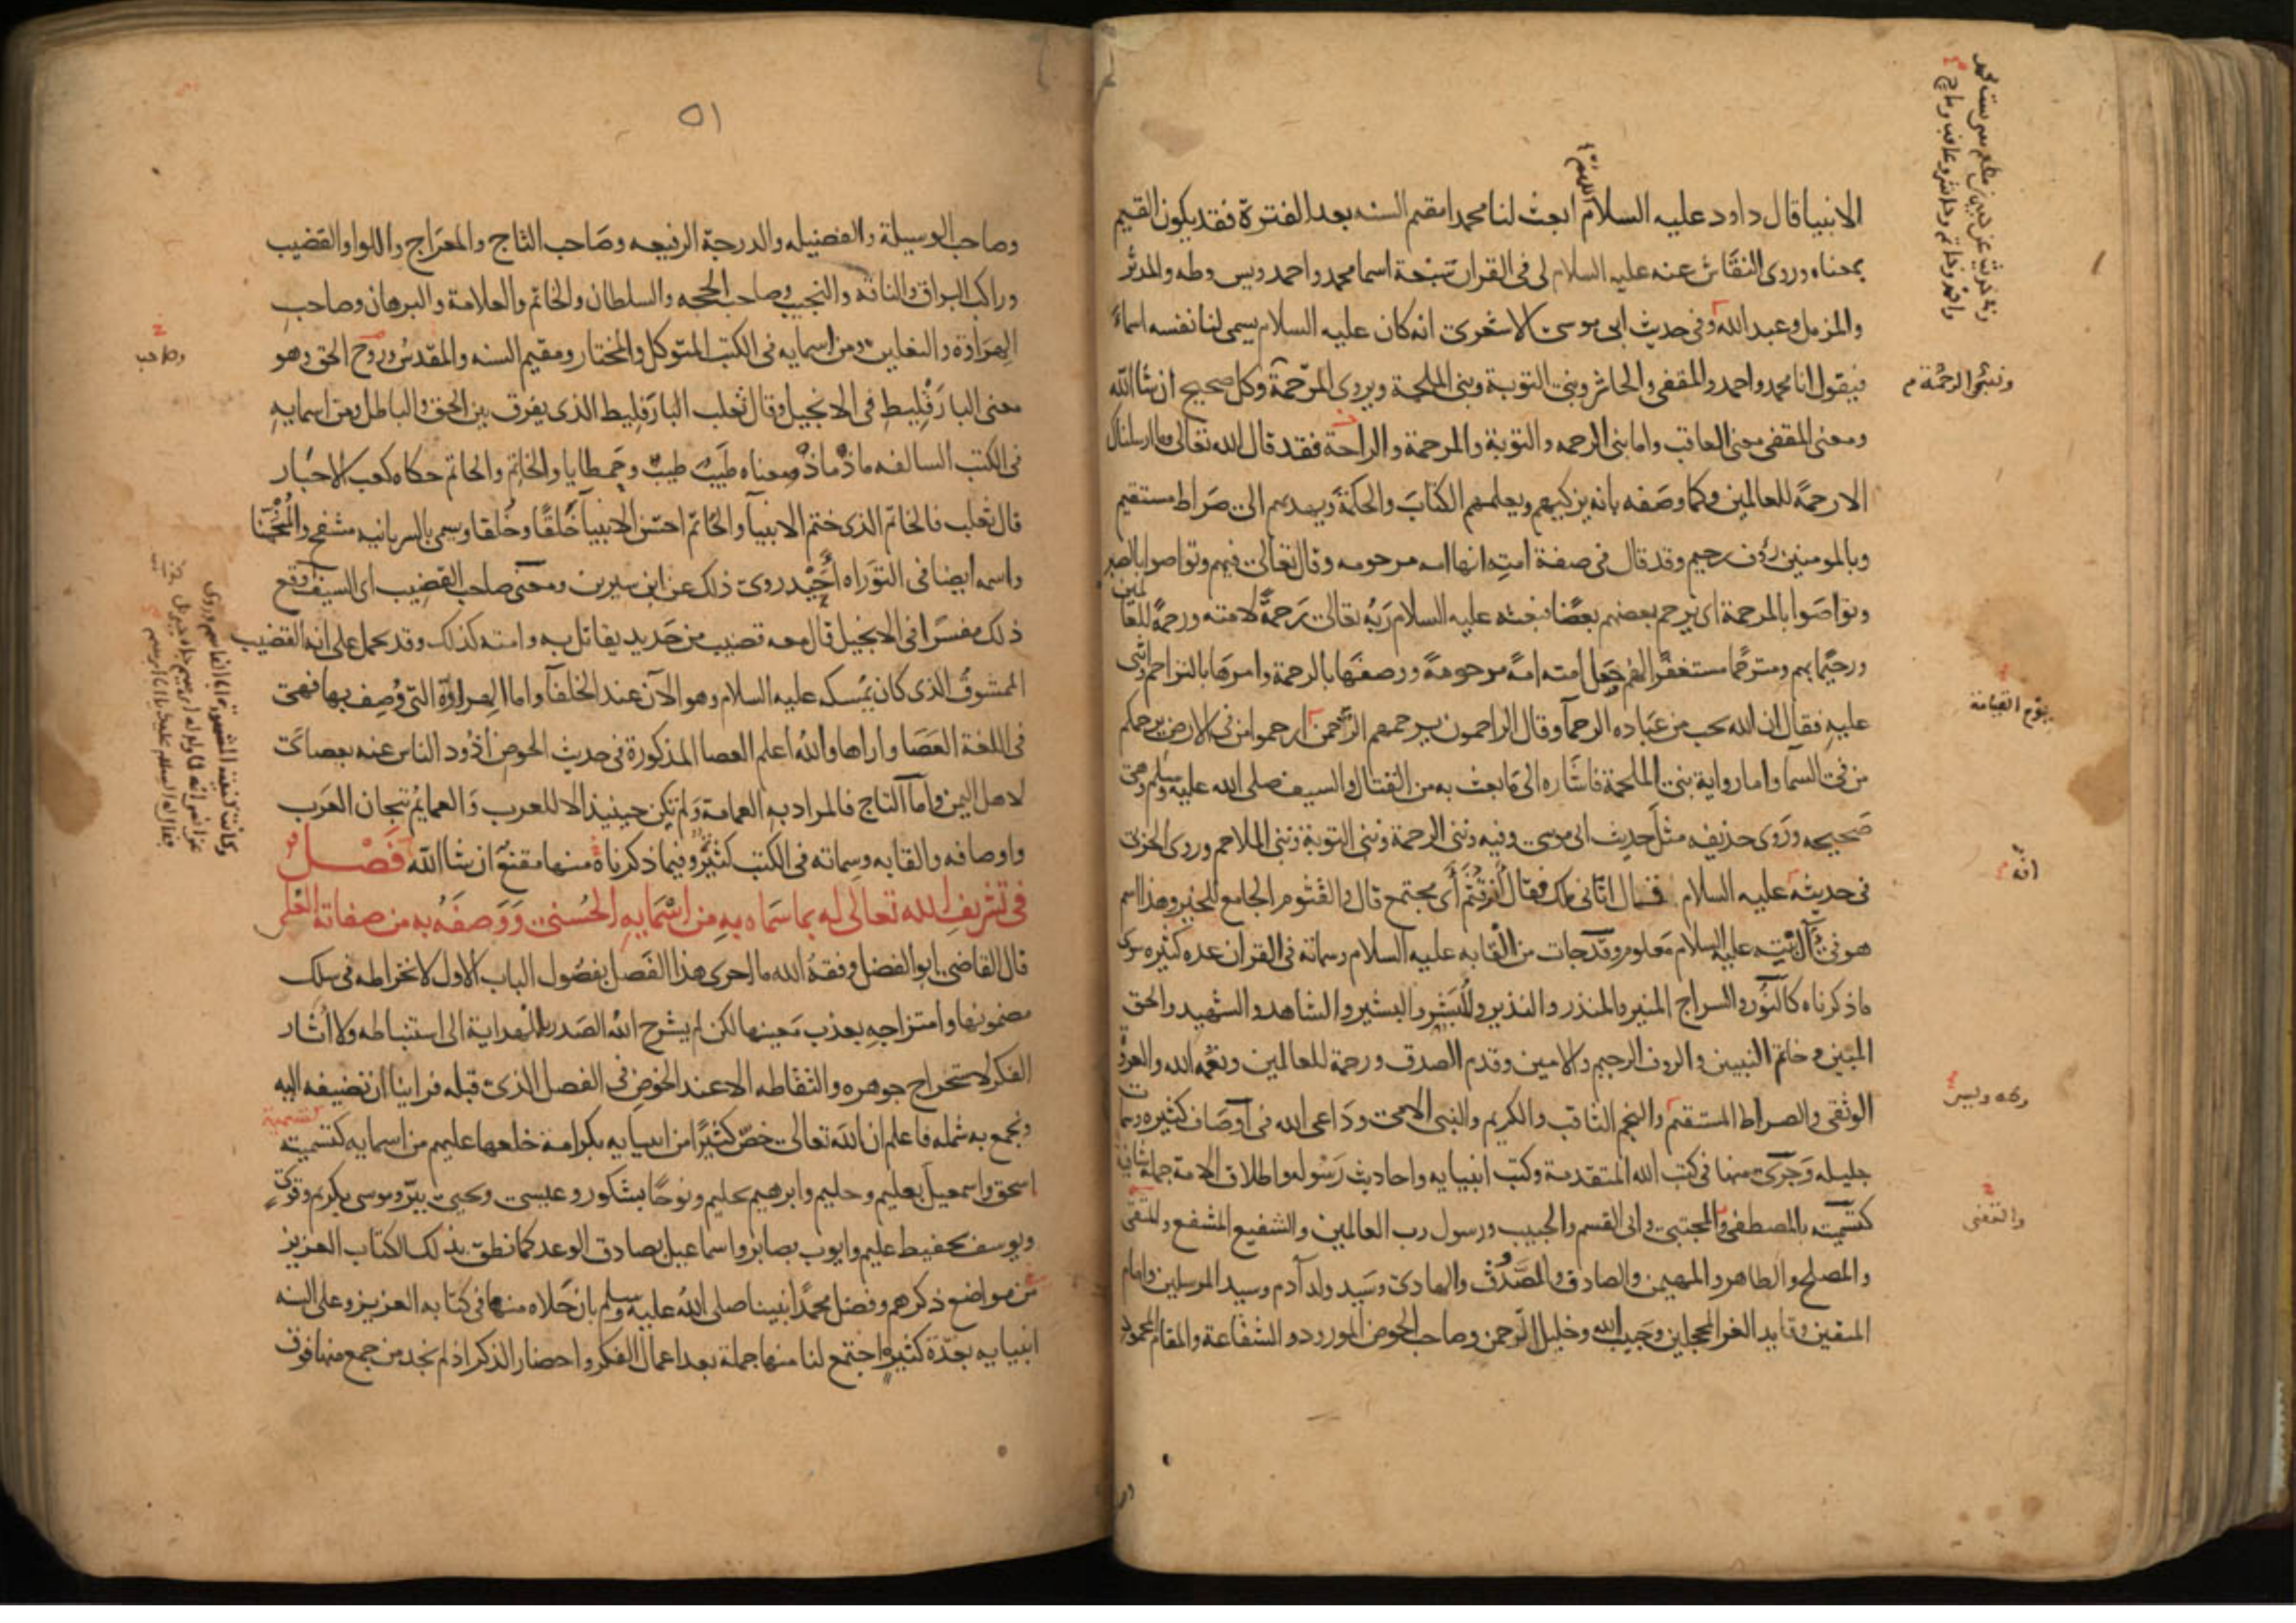 الانبيا قال داود عليه السلام اللهم ابعث لنا محمدا مقيم السنه بعد الفترة فقد يكون القيم
بمعناه وروى النقاش عنه عليه السلام لى فى القران سبعة اسما محمد واحمد ويس وطه والمدثر
والمزمل وعبد الله وفى حديث ابى موسى الاشعرى انه كان عليه السلام يسمى لنا نفسه اسماءً
فيقول انا محمد واحمد والمقفى والحاشر ونبى التوبة ونبى الملحمة ويروى المرحمة وكل صحيح ان شا الله
ونبى الرحمة
ومعنى المقفى معنى العاقب واما نبى الرحمه والتوبة والمرحمة والراحة فقد قال الله تعالى وما ارسلناك
الا رحمة للعالمين وكما وصفه بانه يزكيهم ويعلمهم الكتاب والحكمة ويهديهم الى صراط مستقيم
وبالمومنين رؤف رحيم وقد قال فى صفة امته انها امه مرحومه وقال تعالى فيهم وتواصوا بالصبر
وتواصوا بالمرحمة اى يرحم بعضهم بعضا فبعثه عليه السلام ربه تعالى رحمة لامته ورحمة للعالمين
ورحيما بهم ومترحما مستغفرا لهم وجعل امته امة مرحومة ووصفها بالرحمة وامرها بالتراحم واثنى
عليه فقال ان الله يحب من عباده الرحما وقال الراحمون يرحمهم الرحمن ارحموا من فى الارض يرحمكم
يوم القيامة
من فى السما واما رواية نبى الملحمة فاشاره الى ما بعث به من القتال والسيف صلى الله عليه وسلم وهى
صحيحه وروى حذيفه مثل حديث ابى موسى وفيه ونبى الرحمة ونبى التوبة ونبى الملاحم وروى الحربى
فى حديثه عليه السلام فقال اتانى ملك فقال انت قثم اى مجتمع قال والقثوم الجامع للخير وهذا اسم
انه
هو فى آل بيته عليه السلام معلوم وقد جات من القابه عليه السلام وسماته فى القران عده كثيره سوى
ما ذكرناه كالنور والسراج المنير والمنذر والنذير والمبشر والبشير والشاهد والشهيد والحق
المبين وخاتم النبيين والروف الرحيم والامين وقدم الصدق ورحمة للعالمين ونعمه الله والعروة
وطه ويس
الوثقى والصراط المستقيم والنجم الثاقب والكريم والنبى الامى وداعى الله فى اوصاف كثيره وسمات
جليله وجرى منها فى كتب الله المتقدمة وكتب انبيايه واحاديث رسوله واطلاق الامة جملة شافية
كتسميته بالمصطفى والمجتبى وابى القسم والحبيب ورسول رب العالمين والشفيع المشفع والمتقى
والمصلح والطاهر والمهيمن والصادق والمصدوق والهادى وسيد ولد آدم وسيد المرسلين وامام
المتقين وقايد الغر المحجلين وحبيب الله وخليل الرحمن وصاحب الحوض المورود والشفاعة والمقام المحمود
٥١
وصاحب الوسيلة والفضيله والدرجة الرفيعه وصاحب التاج والمعراج واللوا والقضيب
وراكب البراق والناقه والنجيب وصاحب الحجه والسلطان والخاتم والعلامة والبرهان وصاحب
الهراوة والنعلين ومن اسمايه فى الكتب المتوكل والمختار ومقيم السنه والمقدس وروح الحق وهو
وصاحب
معنى البارقليط فى الانجيل وقال ثعلب البارقليط الذى يفرق بين الحق والباطل ومن اسمايه
فى الكتب السالفه ماذ ماذ ومعناه طيب طيب وحمطايا والخاتم والحاتم حكاه كعب الاحبار
قال ثعلب فالخاتم الذى ختم الانبيا والحاتم احسن الانبيا خلقا وخلقا ويسمى بالسريانيه مشفح والمنحمنا
واسمه ايضا فى التوراه أحيد روى ذلك عن ابن سيرين ومعنى صاحب القضيب اى السيف وقع
ذلك مفسرا فى الانجيل قال معه قضيب من حديد يقاتل به وامته كذلك وقد يحمل على انه القضيب
الممشوق الذى كان يمسكه عليه السلام وهو الآن عند الخلفا واما الهراوة التى وصف بها فهى
فى اللغة العصا واراها والله اعلم العصا المذكورة فى حديث الحوض أذود الناس عنه بعصاى
لاهل اليمن واما التاج فالمراد به العمامة ولم تكن حينيذ الا للعرب والعمايم تيجان العرب
واوصافه والقابه وسماته فى الكتب كثيرة وفيما ذكرناه منها مقنع ان شا الله فصل
فى تشريف الله تعالى له بما سماه به من اسمايه الحسنى ووصفه به من صفاته العلى
قال القاضى ابو الفضل وفقه الله ما احرى هذا الفصل بفصول الباب الاول لانخراطه فى سلك
مضمونها وامتزاجه بعذب معينها لكن لم يشرح الله الصدر للهداية الى استنباطه ولا أثار
الفكر لاستخراج جوهره والتقاطه الا عند الخوض فى الفصل الذى قبله فراينا ان نضيفه اليه
ونجمع به شمله فاعلم ان الله تعالى خص كثيرا من انبيايه بكرامة خلعها عليهم من اسمايه كتسميته
اسحق واسمعيل بعليم وحليم وابرهيم بحليم ونوحا بشكور وعيسى ويحيى ببر وموسى بكريم وقوى
ويوسف بحفيظ عليم وايوب بصابر واسماعيل بصادق الوعد كما نطق بذلك الكتاب العزيز
من مواضع ذكرهم وفضل محمدا نبينا صلى الله عليه وسلم بان حلاه منها فى كتابه العزيز وعلى السنه
انبيايه بعدة كثيرة اجتمع لنا منها جملة بعد اعمال الفكر واحضار الذكر اذ لم نجد من جمع منها فوق